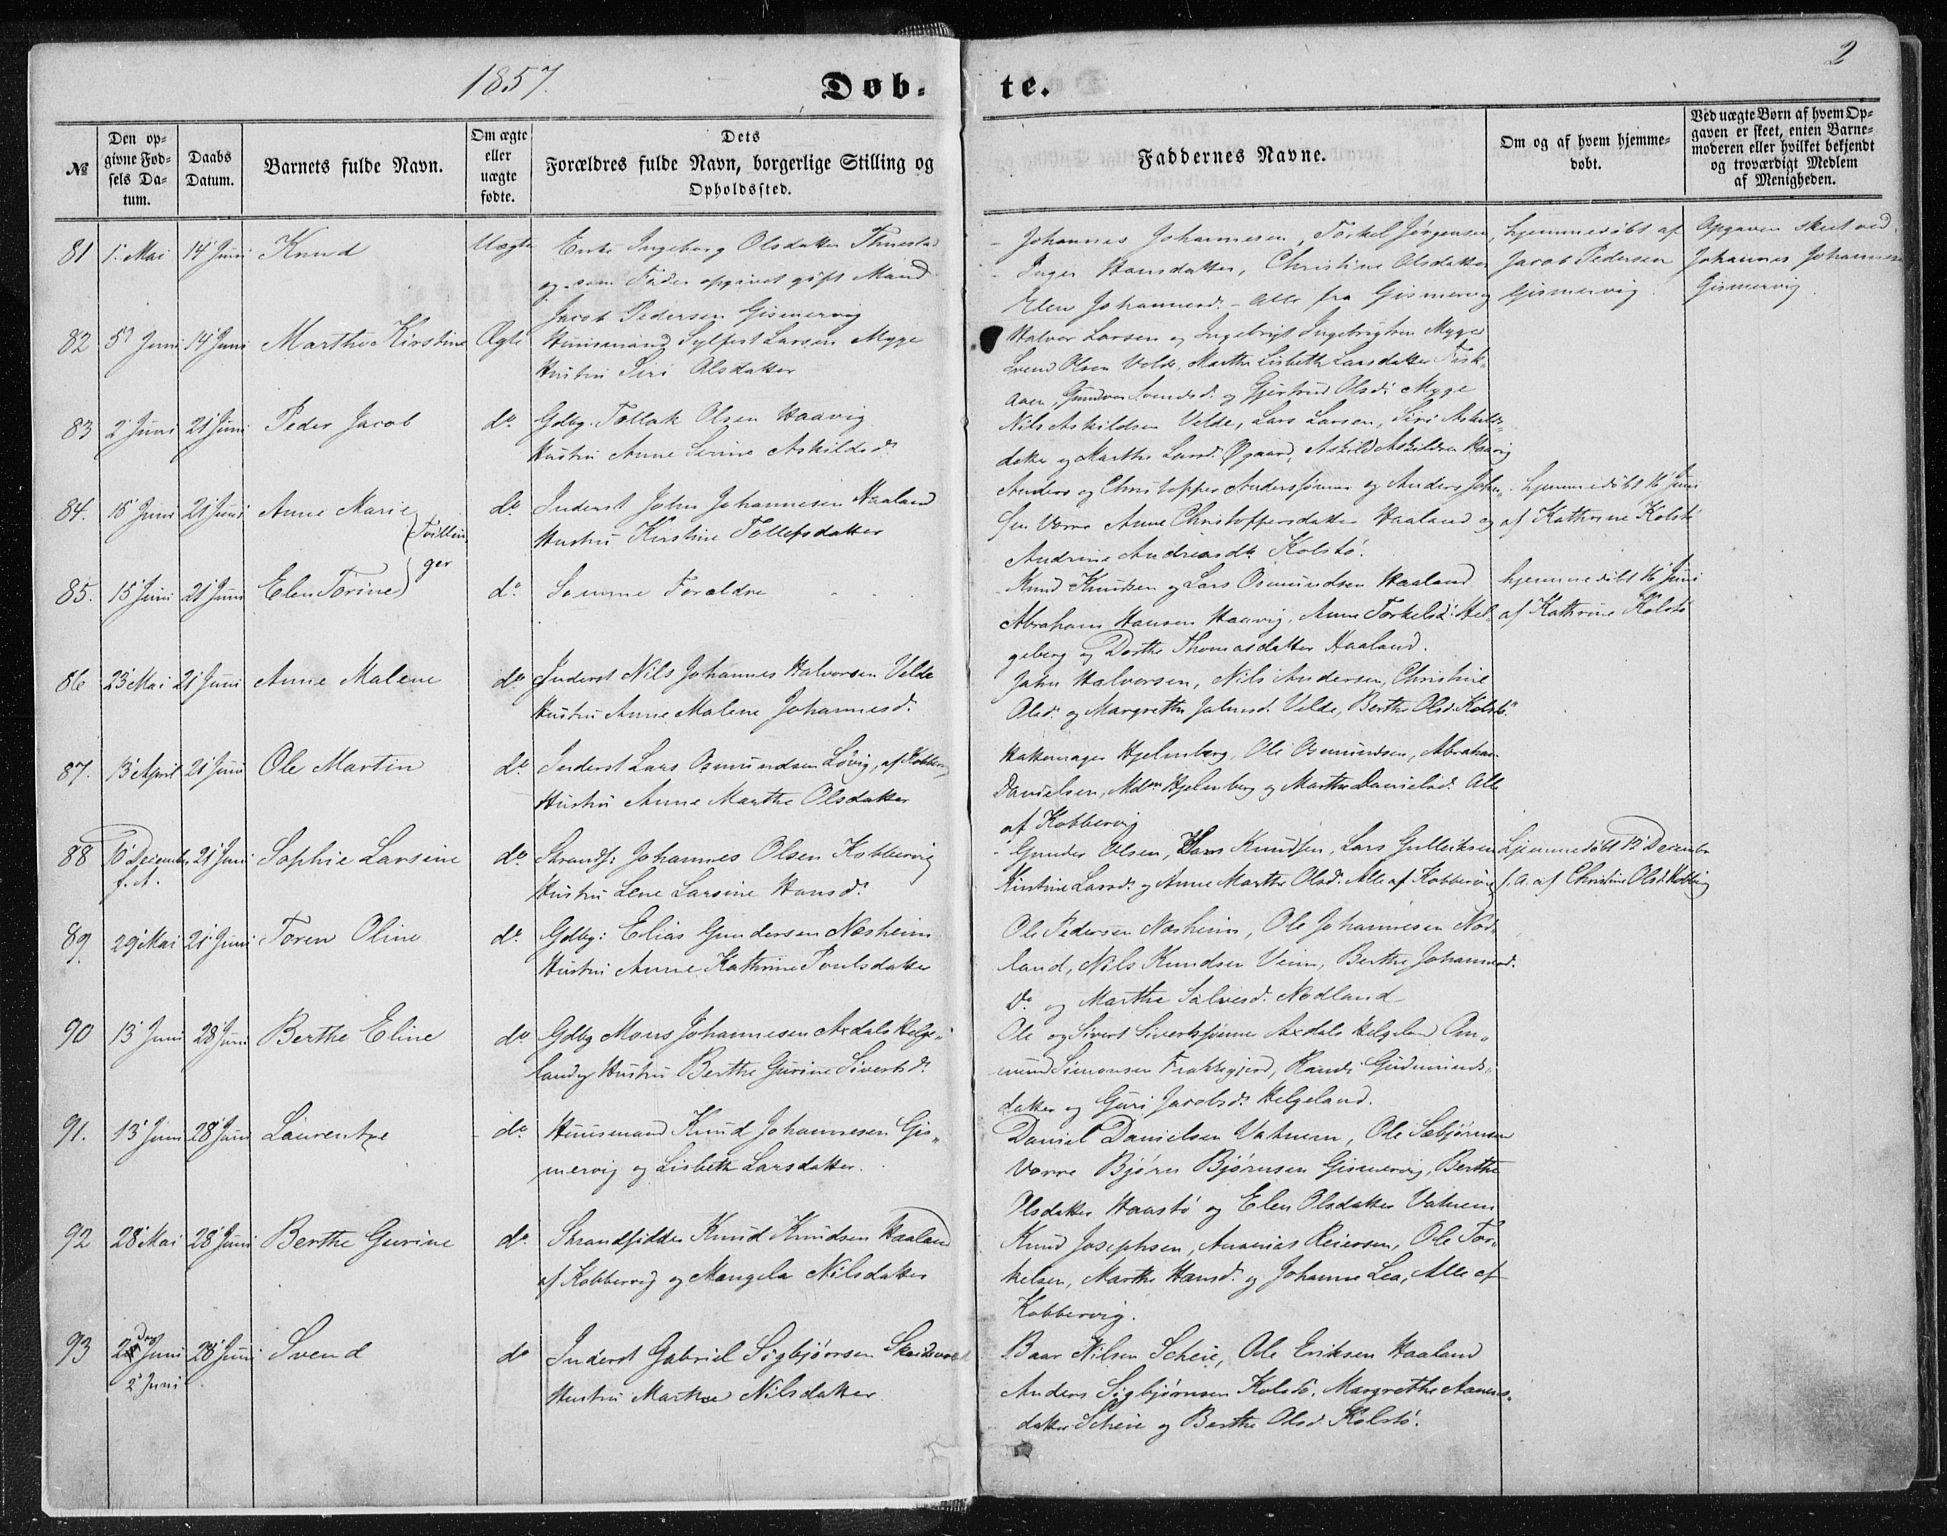 1857.
Døb-
te.
2
№
Den op-
givne Fød-
sels Da-
tum.
Daabs
Datum.
Barnets fulde Navn.
Om ægte
eller
uægte
fødte.
Dets
Forældres fulde Navn, borgerlige Stilling og
Opholdssted.
Faddernes Navne.
Om og af hvem hjemme-
døbt.
Ved uægte Børn af hvem Op-
gaven er skeet, enten Barne-
moderen eller hvilket bekjendt
og troværdigt Medlem
af Menigheden.
81 1 Mai 14 Juni Knud Uægte Enke Ingeborg Olsdatter
og som Fader opgivet gift Mand
Jacob Pedersen Gismervig
Johannes Johannesen, Torkel Jørgensen,
Inger Hansdatter, Christine Olsdatter
Elen Johannesd. - Alle fra Gismervig
hjemmedøbt af
Jacob Pedersen
Gismervig
Opgaven skeet ved
Johannes Johannesen
Gismervig
82 5 Juni 14 Juni Marthe Kirstine Ægte Huusmand Sylfest Larsen Myge
Hustru Siri Olsdatter
Halvor Larsen og Ingebrigt Ingebrigtsen Myge
Svend Olsen Velde, Marthe Lisbeth Larsdatter Fisk-
aaen, Gundvor Svendsd. og Gjertrud Olsd. Myge
83 2 Juni 21 Juni Peder Jacob do Gdbg. Tollak Olsen Haavig
Hustru Anne Serine Askildsd.
Nils Askildsen Velde, Lars Larsen, Siri Askilds-
datter og Marthe Larsd. Øgaard, Askild Askildsen Haavig
84. 15 Juni 21 Juni Anne Marie do Inderst John Johannesen Haaland
Hustru Kirstine Tollefsdatter
(Tvillin-
ger
Anders og Christopher Anderssønner og Anders John-
sen Vorre Anne Christophersdatter Haaland og
Andrine Andreasdr Kolstø.
hjemmedøbt 16 Juni
af Kathrine Kolstø
85. 15 Juni 21 Juni Elen Torine) do Samme Forældre
Knud Knudsen og Lars Osmundsen Haaland
Abraham Hansen Haavig, Anne Torkelsd. Hel-
geberg og Dorthe Thomasdatter Haaland.
hjemmedøbt 16 Juni
af Kathrine Kolstø
86 23 Mai 21 Juni Anne Malene do Inderst Nils Johannes Halvorsen Velde
Hustru Anne Malene Johannesd.
John Halvorsen, Nils Andersen, Christine
Olsd. og Margrethe Johnsd. Velde, Berthe Olsd. Kolstø.
87. 13 April 21 Juni Ole Martin do Inderst Lars Osmundsen Løvig, af Kobberv.
Hustru Anne Marthe Olsdatter
Hattemager Hjelmberg, Ole Osmundsen, Abraham
Danielsen, Mdm Hjelmberg og Marthe Danielsd. Alle
af Kobbervig
88 6 December 21 Juni Sophie Larsine do Strandf: Johannes Olsen Kobbervig
f. A. Hustru Lene Larsine Hansd.
Gunder Olsen, Hans Knudsen, Lars Gulleiksen
Kirstine Larsd. og Anne Marthe Olsd. Alle af Kobbervig
hjemmedøbt 12 December
f. A. af Christine Olsd. Kobbvig
89. 29 Mai 21 Juni Toren Oline do Gdbg: Elias Gundersen Næsheim
Hustru Anne Kathrine Poulsdatter
Ole Pedersen Næsheim, Ole Johannesen Nod-
land, Nils Knudsen Veim, Berthe Johannesd.
Do og Marthe Salvesd. Nodland
90 13 Juni 28 Juni Berthe Eline do Gdbg Mons Johannesen Axdals Helge-
land og Hustru Berthe Gurine Sivertsd.
Ole og Sivert Sivertssønner Axdals Helgeland Om-
mund Simonsen Frakkegjerd, Randi Gudmunds-
datter og Guri Jacobsd. Helgeland.
91. 13 Juni 28 Juni Laurentze do Huusmand Knud Johannesen Gis-
mervig og Lisbeth Larsdatter.
Daniel Danielsen Vatnem, Ole Sæbjørnsen
Vorre Bjørn Bjørnsen Gismervig, Berthe
Olsdatter Haastø og Elen Olsdatter Vatnem
92 28 Mai 28 Juni Berthe Gurine do Strandsidder Knud Knudsen Haaland
af Kobbervig og Mangela Nilsdatter
Knud Josephsen, Ananias Reiersen, Ole Tor-
kelsen, Marthe Hansd. og Johanne Lea, Alle af
Kobbervig.
93 Juni 28 Juni Svend do Inderst Gabriel Sigbjørnsen
2 Juni Hustru Marthe Nilsdatter
Baar Nilsen Scheie, Ole Eriksen Haaland
Anders Sigbjørnsen Kolstø, Margrethe Aanens-
datter Scheie og Berthe Olsd. Kolstø.